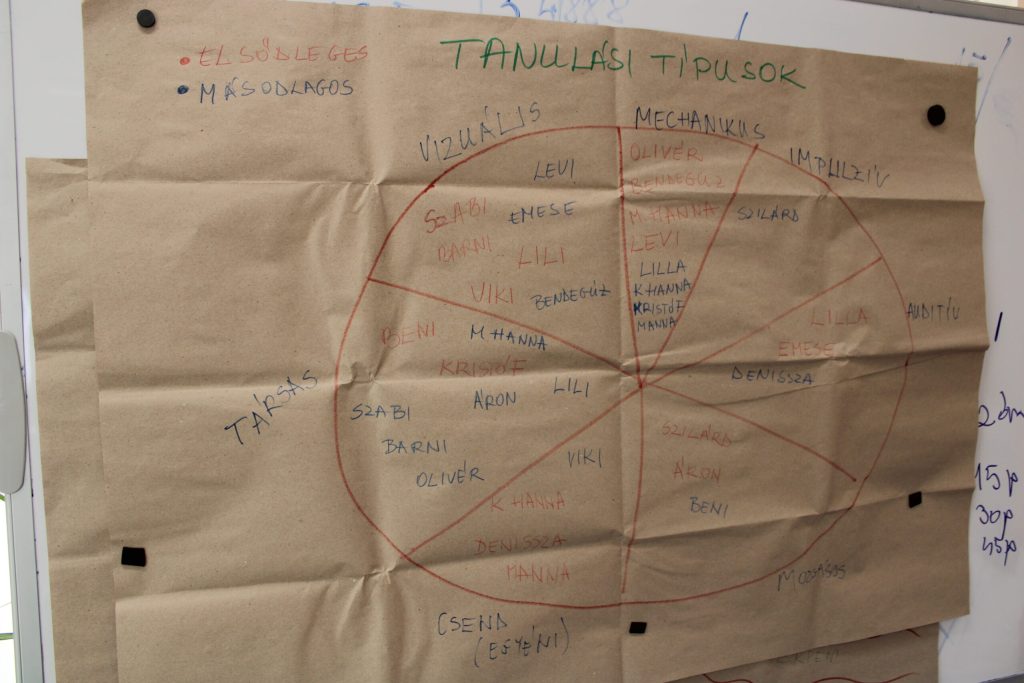 TANULÁSI TÍPUSOK
ELSŐDLEGES
MÁSODLAGOS
VIZUÁLIS
LEVI
SZABI
EMESE
BARNI
LILI
VIKI
BENDEGÚZ
MECHANIKUS
OLIVÉR
BENDEGÚZ
M HANNA
LEVI
LILLA
K HANNA
KRISTÓF
MANNA
IMPULZÍV
SZILÁRD
AUDITÍV
LILLA
EMESE
DENISSZA
MOZGÁSOS
SZILÁRD
ÁRON
BENI
CSEND
(EGYÉNI)
K HANNA
DENISSZA
MANNA
TÁRSAS
BENI
M HANNA
KRISTÓF
LILI
ÁRON
SZABI
BARNI
OLIVÉR
VIKI
15p
30p
45p